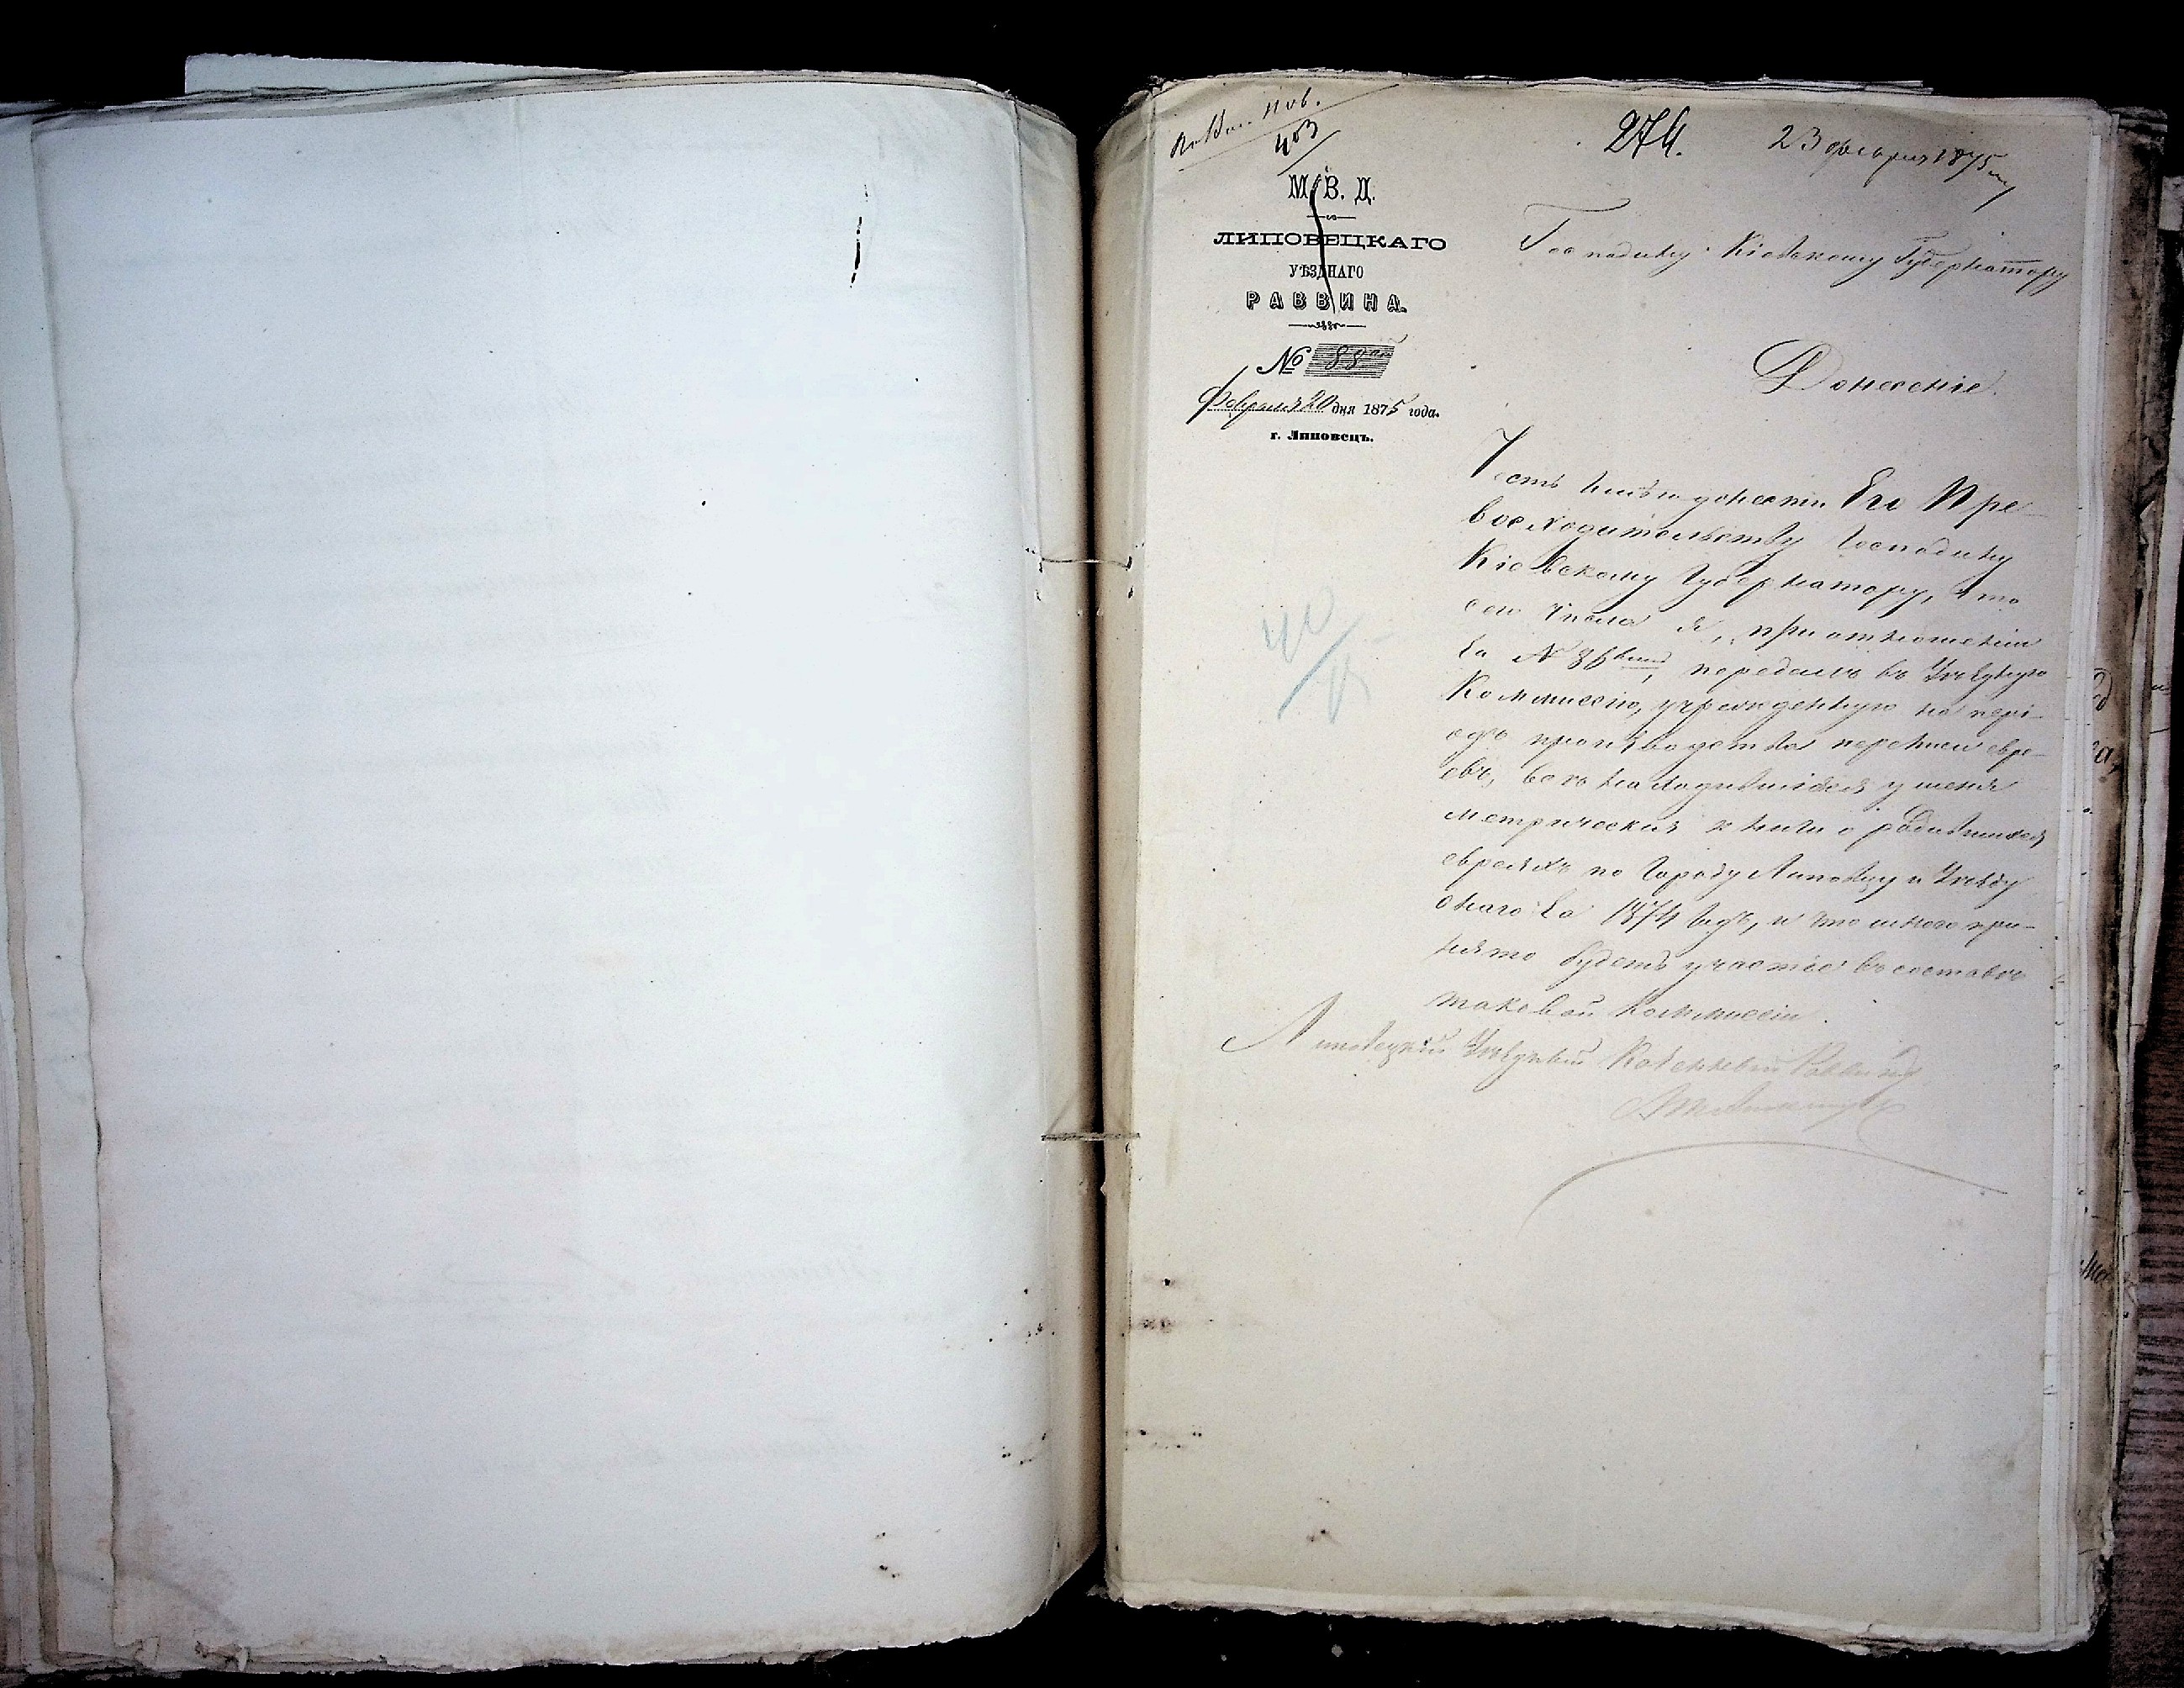 403
274.
23 февраля 1875
М. В. Д.
ЛИПОВЕЦКАГО
УѢЗДНАГО
РАВВИНА.
№ 88
Февраля 20 дня 1875 года.
г. Липовецъ.
Господину Кіевскому Губернатору
Донесеніе.
Честь имѣю донести Его Пре-
восходительству Господину
Кіевскому Губернатору, что
сего числа я, при отношеніи
за № 86, передалъ въ Уѣздную
Коммиссію, учрежденную на пері-
одъ производства переписи евре-
евъ, всѣ находившіяся у меня
метрическія книги о родившихся
евреяхъ по Городу Липовцу и Уѣзду
онаго за 1874 годъ, и что мною при-
нято будетъ участіе въ составѣ
таковой Коммиссіи.
Липовецкій Уѣздный Казенный Раввинъ